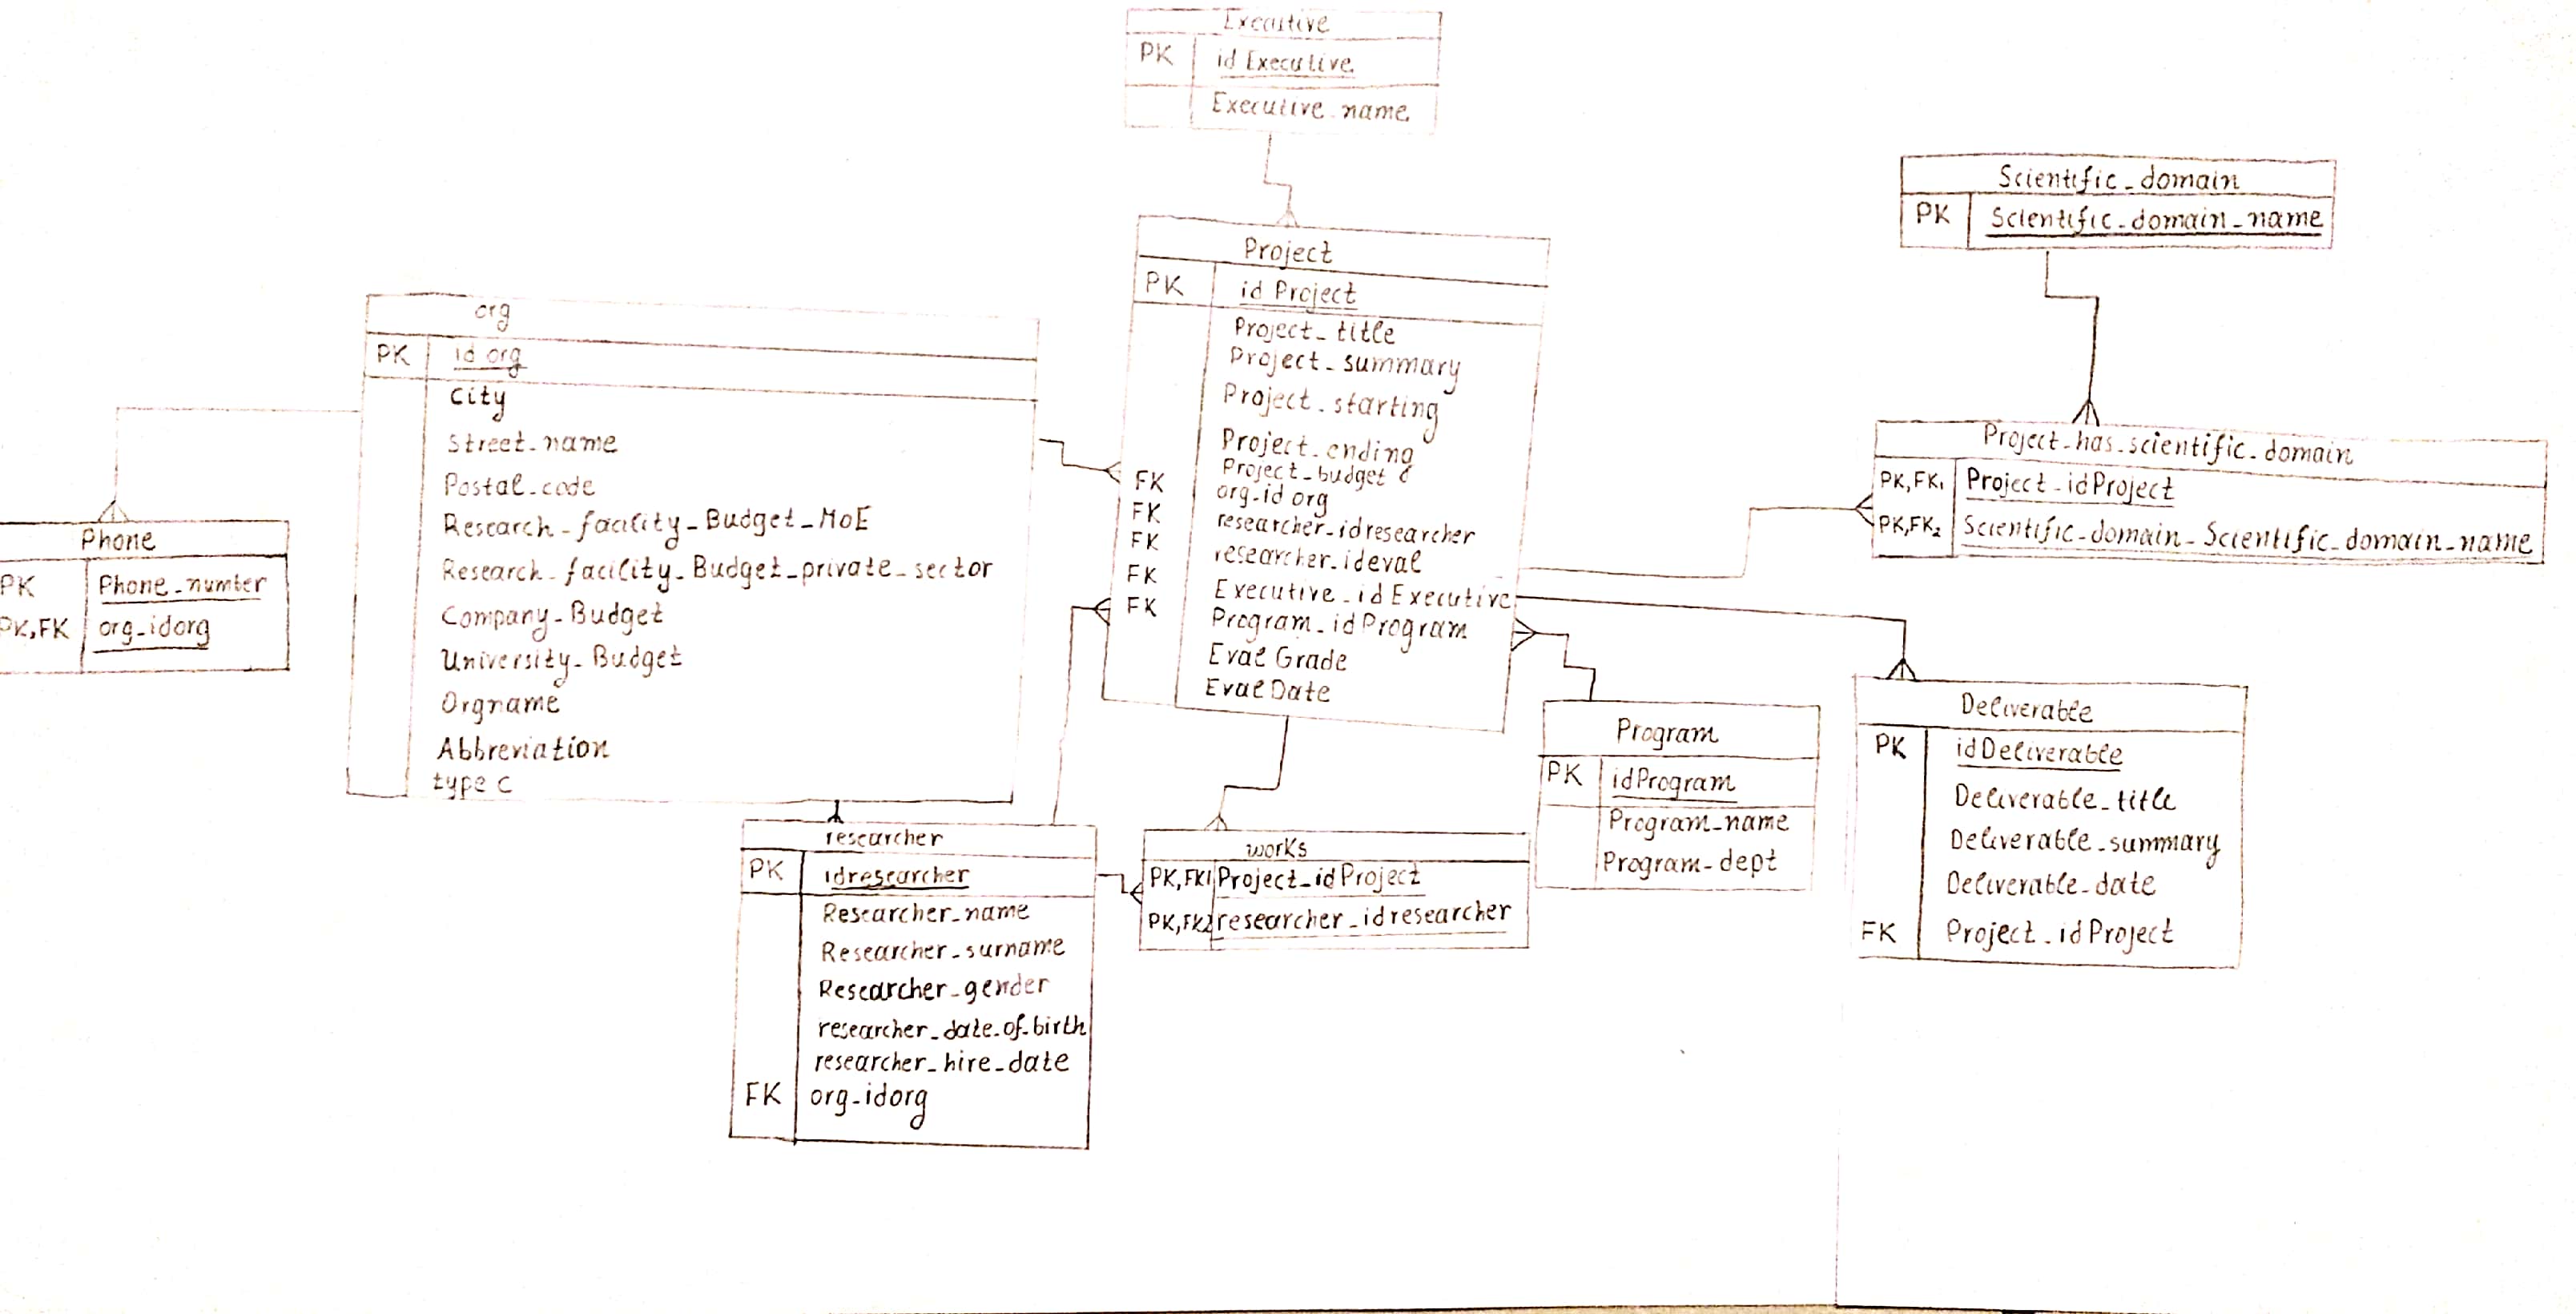 Executive
PK idExecutive
Executive_name
Scientific_domain
PK Scientific_domain_name
Project
PK idProject
Project_title
Project_summary
Project_starting
Project_ending
Project_budget
FK org_idorg
FK researcher_idresearcher
FK researcher_ideval
FK Executive_idExecutive
FK Program_idProgram
Eval Grade
Eval Date
org
PK idorg
City
Street_name
Postal_code
Research_facility_Budget_MoE
Research_facility_Budget_private_sector
Company_Budget
University_Budget
Orgname
Abbreviation
type C
Project_has_scientific_domain
PK,FK1 Project_idProject
PK,FK2 Scientific_domain_Scientific_domain_name
Phone
PK Phone_number
PK,FK org_idorg
Program
PK idProgram
Program_name
Program_dept
Deliverable
PK idDeliverable
Deliverable_title
Deliverable_summary
Deliverable_date
FK Project_idProject
researcher
PK idresearcher
Researcher_name
Researcher_surname
Researcher_gender
researcher_date_of_birth
researcher_hire_date
FK org_idorg
works
PK,FK1 Project_idProject
PK,FK2 researcher_idresearcher